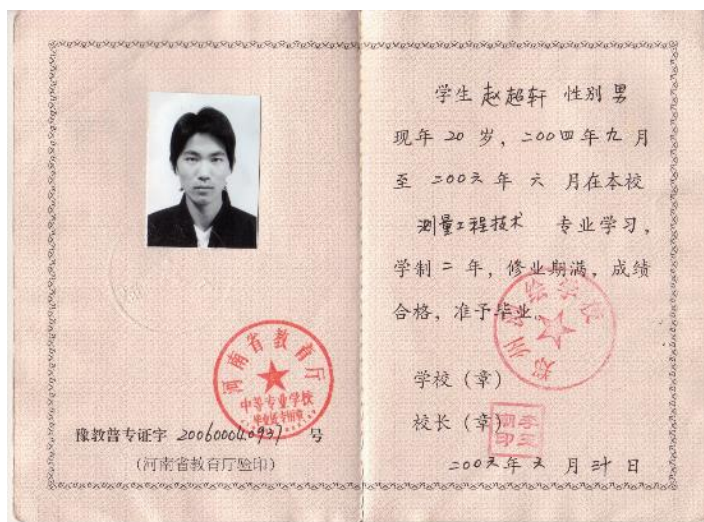 河南省教育厅
中等专业学校
毕业证专用章
豫教普专证字 200600040937 号
(河南省教育厅验印)
学生 赵超轩 性别 男
现年 20 岁，二00四年九月
至 二00六年 六 月在本校
测量工程技术 专业学习，
学制 二 年，修业期满，成绩
合格，准予毕业。
学校（章）
校长（章）
二00六年 六 月 三十 日